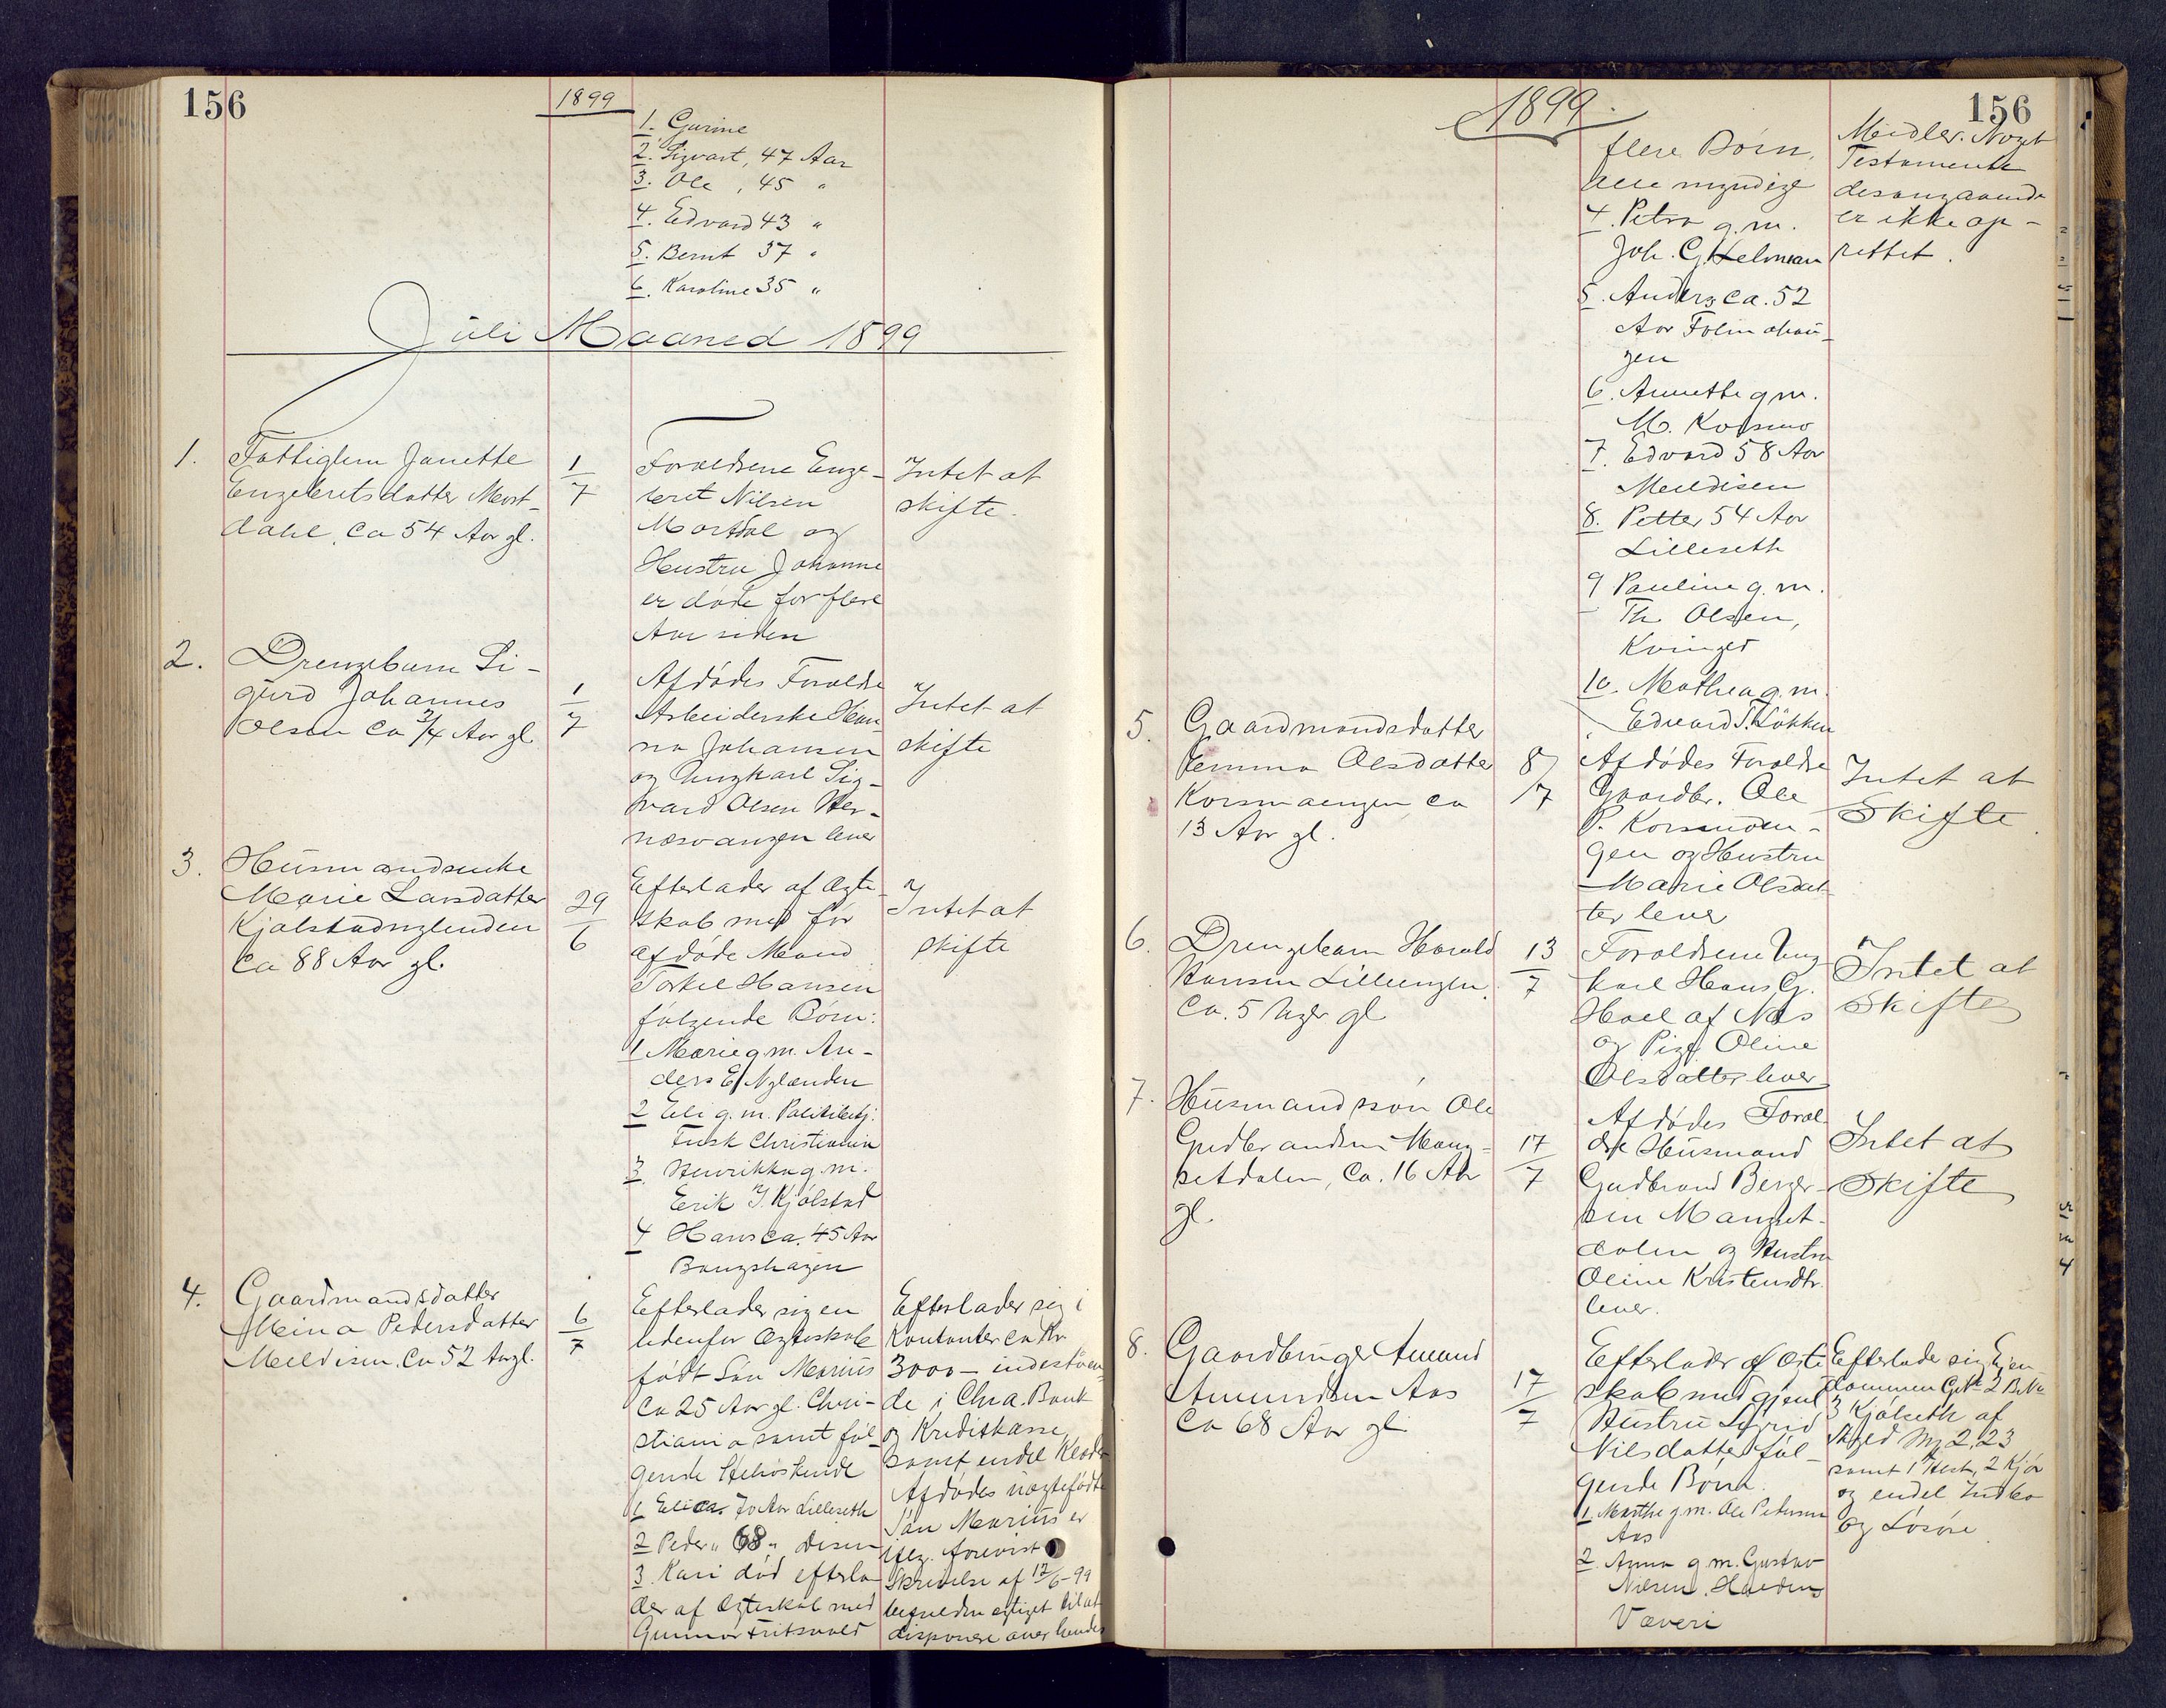 156
1899
1. Gurine
2. Sigvart, 47 Aar
3. Ole, 45 "
4. Edvard 43 "
5. Bernt 37 "
6. Karoline 35 "
Juli Maaned 1899
1.
Fattiglem Janette
Engebretsdatter Mort-
dahl, ca 54 Aar gl.
1/7
Forældrene Enge-
bret Nilsen
Mortdal og
Hustru Johanne
er døde for flere
Aar siden
Intet at
skifte.
2.
Drengebarn Si-
gurd Johannes
Olsen ca 3/4 Aar gl
1/7
Afdødes Forældre
Arbeiderske Han-
na Johansen
og Ungkarl Sig-
vard Olsen Her-
næsvangen lever
Intet at
skifte
3.
Husmandsenke
Marie Larsdatter
Kjølstadnylenden
ca 88 Aar gl.
29/6
Efterlader af Ægte-
skab med før
afdøde Mand
Torkel Hansen
følgende Børn:
1 Marie g.m. An-
ders E. Nylenden
2 Eli g.m. Politibetj.
Fusk Christiania
3 Henrikka g.m.
Erik J. Kjølstad
4 Hans ca. 45 Aar
Bangshagen
Intet at
skifte
4.
Gaardmandsdatter
Mina Pedersdatter
Meldisen. ca 52 Aar gl.
6/7
Efterlader sig en
udenfor Ægteskab
født Søn Marius
ca 25 Aar gl. Chri-
stiania samt føl-
gende Helsøskende
1 Eli ca. 70 Aar Lilleseth
2 Peder " 68 " Disen
3 Kari død efterla-
der af Ægteskab med
Gunnar
Efterlader sig i
Kontanter ca Kr.
3000 - indestaaen-
de i Chra. Bank
og Kreditkasse
samt endel Klæder
Afdødes uægtefødte
Søn Marius er
iflg. forevist
Skrivelse af 12/6-99
disponere over hendes
1899.
156
flere Børn,
alle myndige
4. Petra g.m.
Joh. G. Helmoen
5. Anders ca. 52
Aar
gen
6. Annette g m.
M. Korsmo
7. Edvard 58 Aar
Meldisen
8. Petter 54 Aar
Lilleseth
9 Pauline g.m.
Th Olsen,
10. Mathea g.m.
Edvard T. Løkken
Midler. Noget
Testamente
desangaaende
er ikke op-
rettet.
5.
Gaardmandsdatter
Emma Olsdatter
Korsmoengen ca
13 Aar gl.
8/7
Afdødes Forældre
Gaardbr. Ole
P. Korsmoen-
gen og Hustru
Marie Olsdat-
ter lever
Intet at
Skifte.
6.
Drengebarn Harald
Hansen Lilleengen.
ca. 5 Uger gl
13/7
Forældrene Ung-
karl Hans G.
Hoel af Næs
og Pige Oline
Olsdatter lever
Intet at
Skifte
7.
Husmandssøn Ole
Gudbrandsen Mang-
setdalen, ca. 16 Aar
gl.
17/7
Afdødes Foræl-
dre Husmand
Gudbrand Berger-
sen Mangset-
dalen og Hustru
Oline Kristensdtr.
lever.
Intet at
Skifte
8.
Gaardbruger Amund
Amundsen Aas
ca 68 Aar gl
17/7
Efterlader af Ægte-
skab med gjenl.
Hustru Sigrid
Nilsdatter føl-
gende Børn.
1 Marthe g.m. Ole Petersen
Aas
2. Anna g.m. Gustav
Nilsen, Halden
Væveri
Efterlader sig Ejen-
dommen GNo 2 BNo
3 Kjølseth af
Skyld Mk 2,23
samt 1 Hest, 2 Kjør
og endel Indbo
og Løsøre